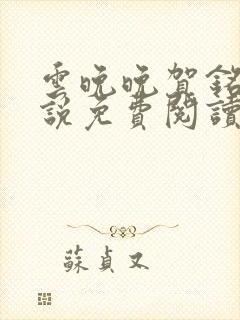 雲晚晚賀銘
說免費閱讀
蘇貞又